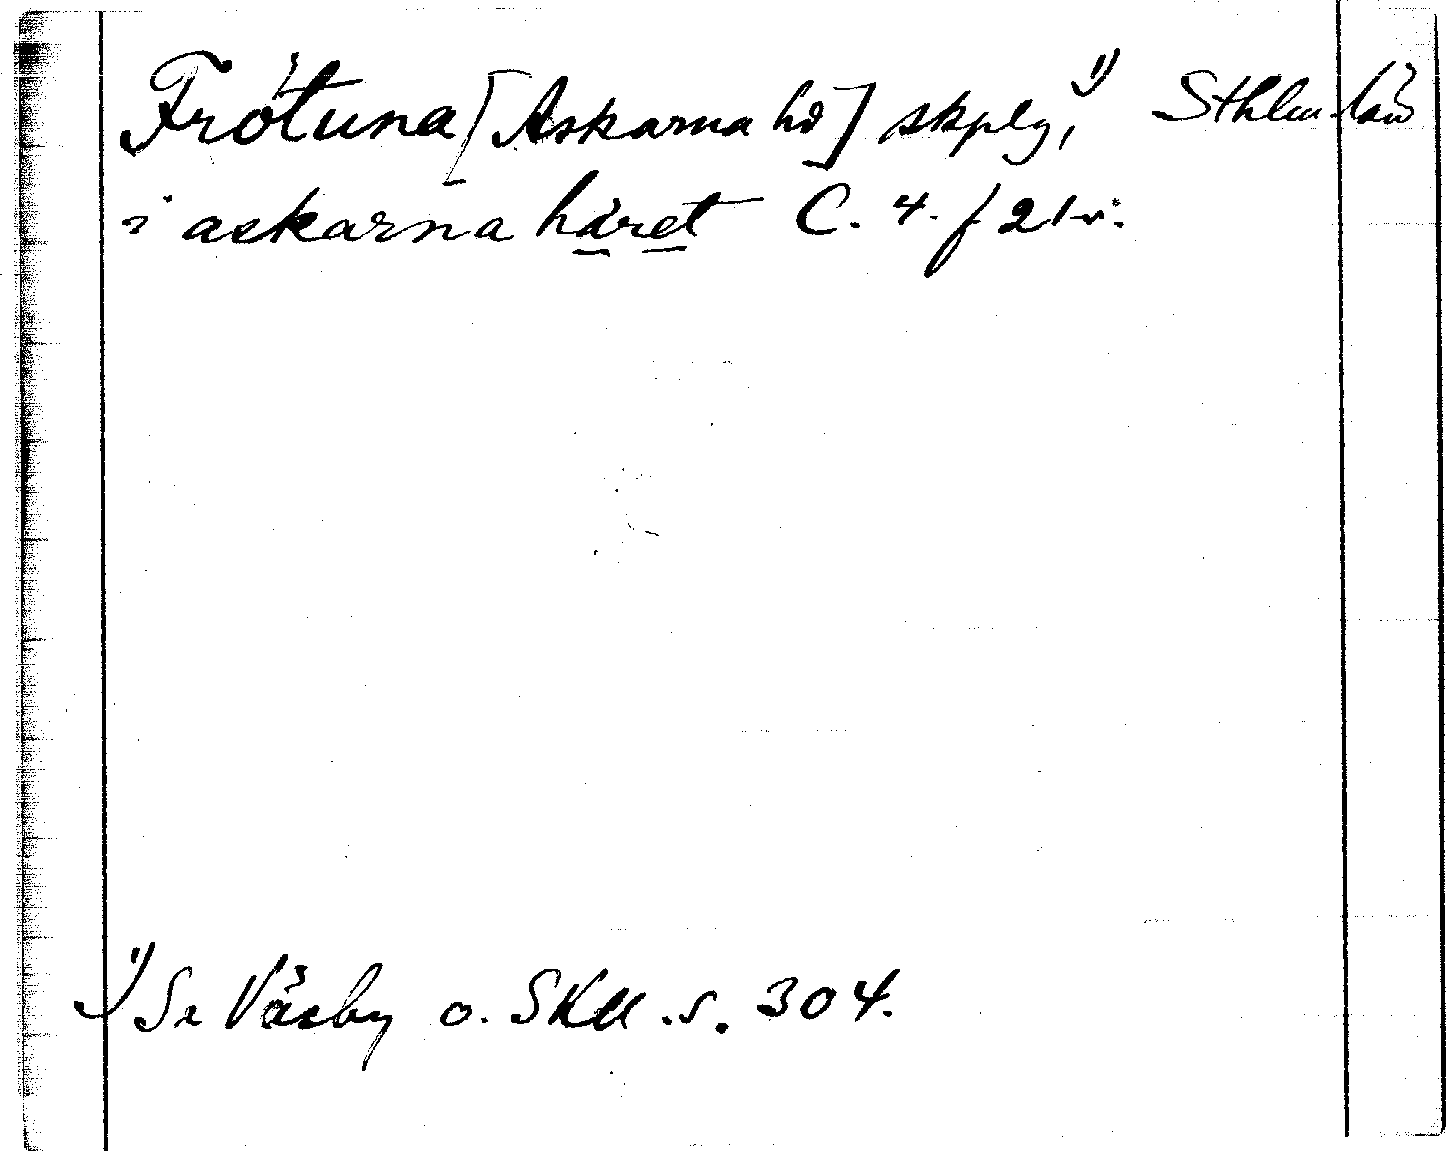 Frötuna [Askarna hd] skplg,¹⁾ Sthlm län
i askarna häret C. 4. f 21 v.
¹⁾ Se Väsby o. SKU. s. 304.